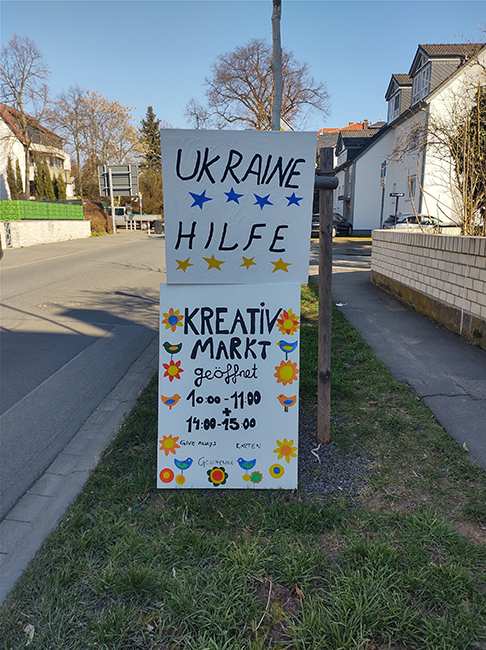 UKRAINE
HILFE
KREATIV
MARKT
geöffnet
10:00-11:00
+
14:00-15:00
GIVE AWAYS KARTEN
GESCHENKE